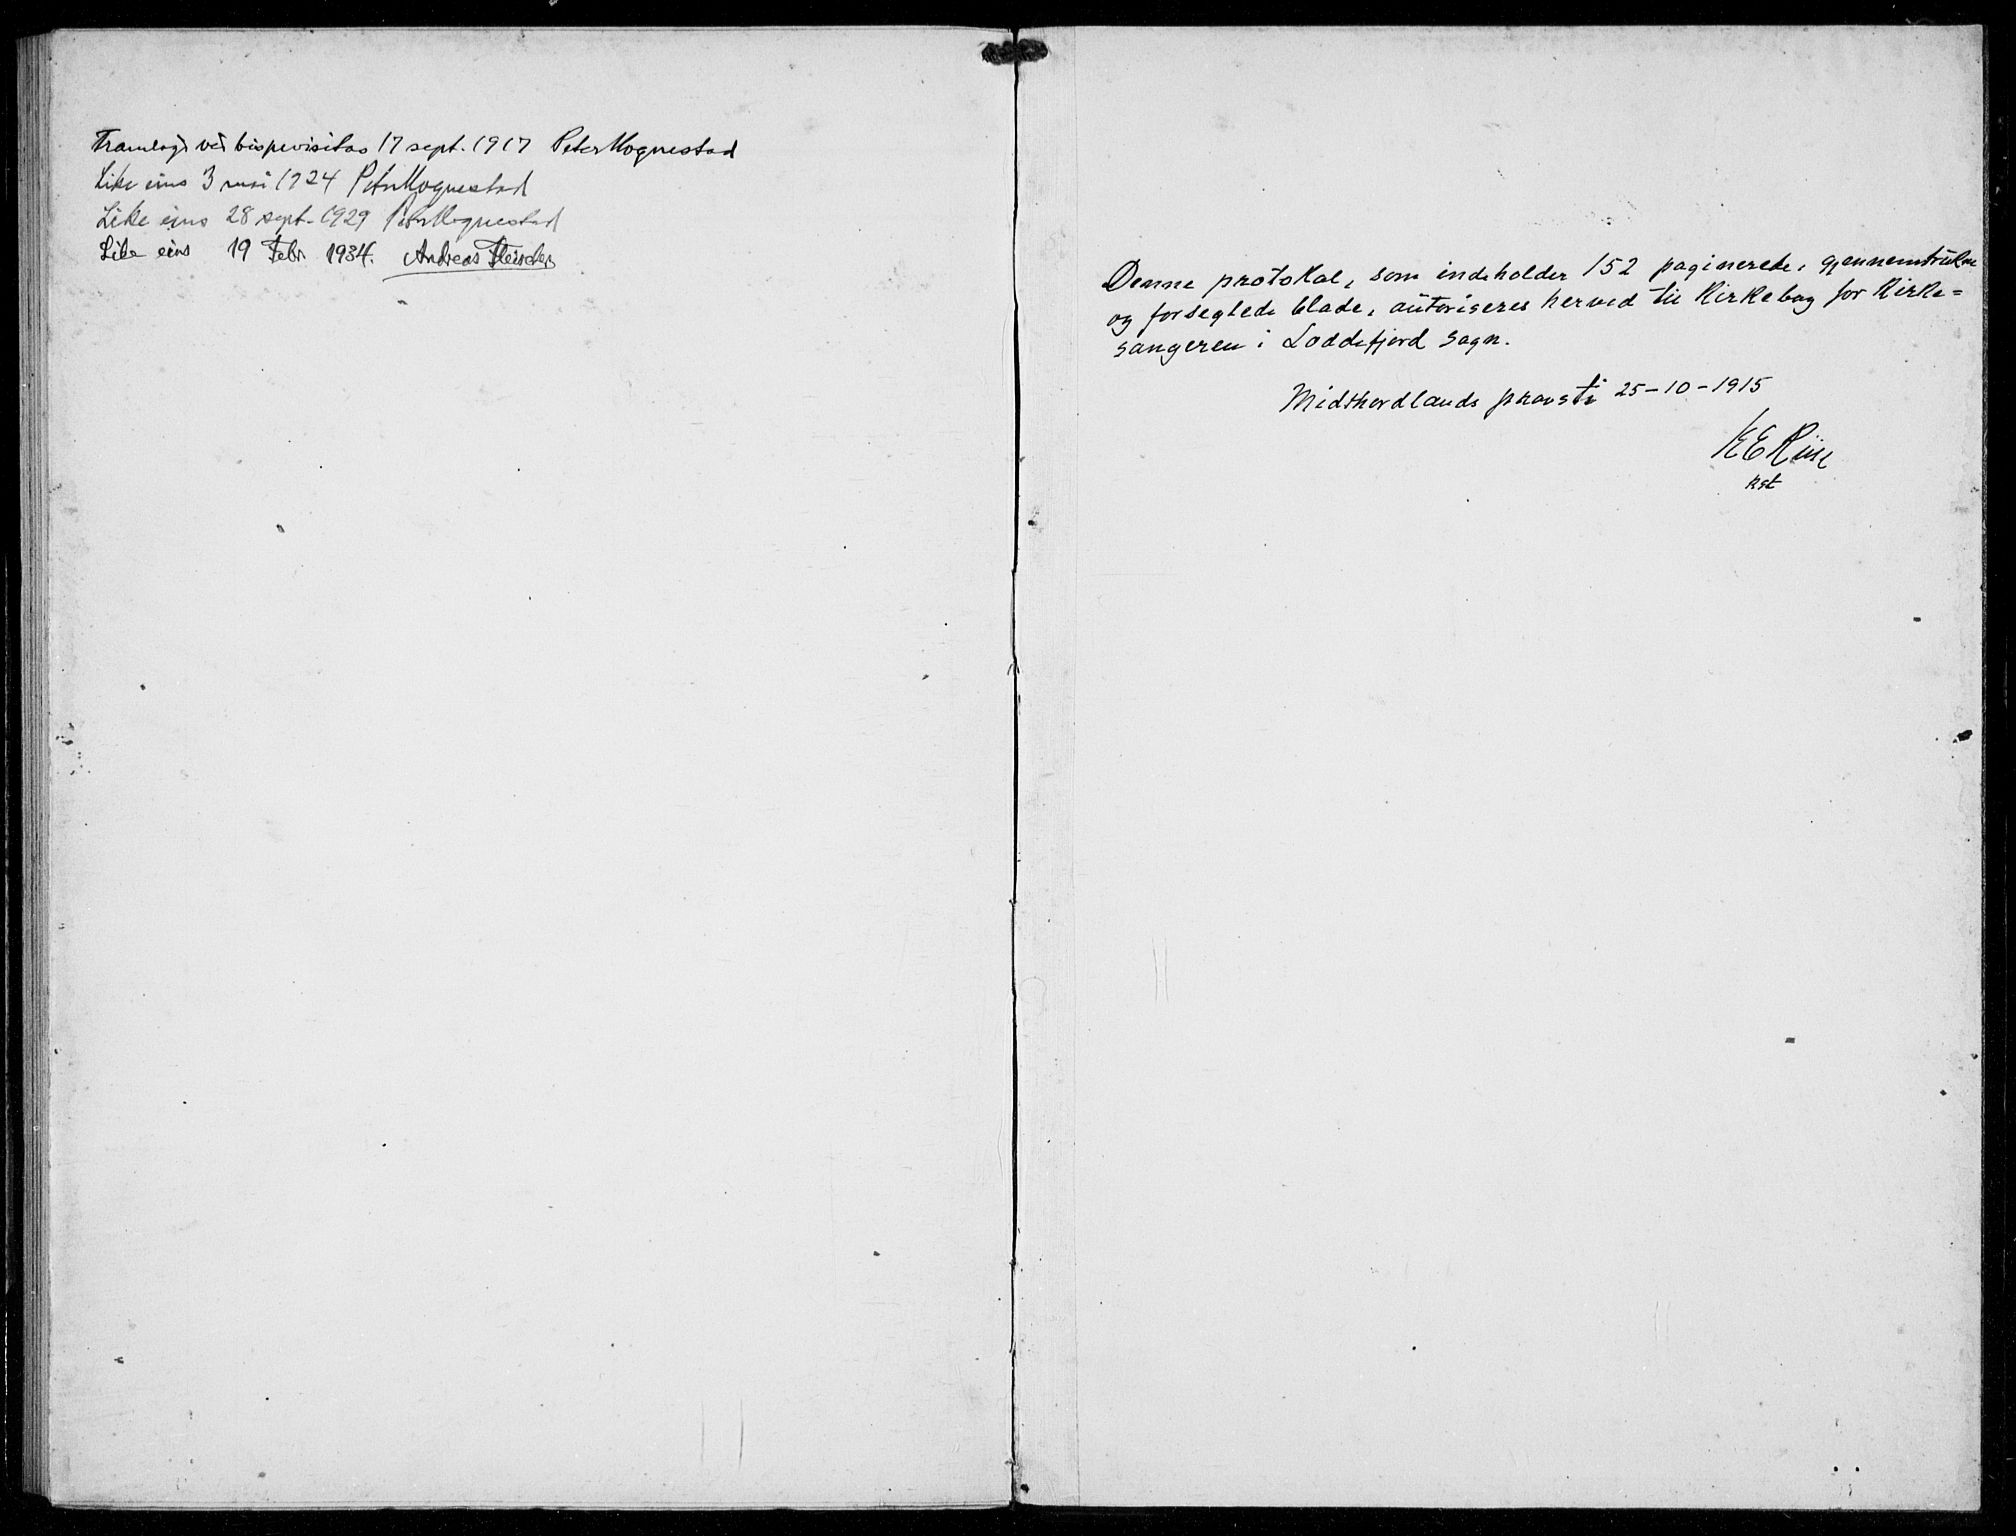 Framlagt ved bispevisitas 17 sept. 1917 Peter Hognestad
Like eins 3 mai 1924 Peter Hognestad
Like eins 28 sept. 1929 Peter Hognestad
Like eins 19 Febr. 1934. Andreas Fleischer
Denne protokol, som indeholder 152 paginerede, gjennemtrukne
og forseglede blade, autoriseres herved til Kirkebog for Kirke=
sangeren i Loddefjord sogn.
Midthordlands provsti 25-10-1915
K E Riise
kst